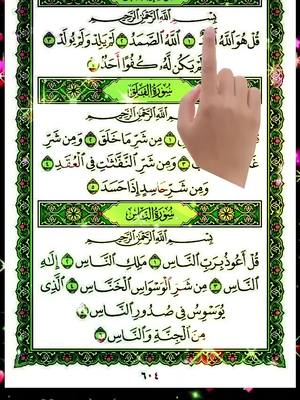 بِسْمِ اللَّهِ الرَّحْمَٰنِ الرَّحِيمِ
قُلْ هُوَ اللَّهُ ١ اللَّهُ الصَّمَدُ ٢ لَمْ يَلِدْ وَلَمْ يُولَدْ ٣
وَلَمْ يَكُنْ لَهُ كُفُوًا أَحَدٌ
سُورَةُ الْفَلَقِ
بِسْمِ اللَّهِ الرَّحْمَٰنِ الرَّحِيمِ
١ مِنْ شَرِّ مَا خَلَقَ ٢ وَمِنْ شَرِّ
٣ وَمِنْ شَرِّ النَّفَّاثَاتِ فِي الْعُقَدِ ٤
وَمِنْ شَرِّ حَاسِدٍ إِذَا حَسَدَ ٥
سُورَةُ النَّاسِ
بِسْمِ اللَّهِ الرَّحْمَٰنِ الرَّحِيمِ
قُلْ أَعُوذُ بِرَبِّ النَّاسِ ١ مَلِكِ النَّاسِ ٢ إِلَٰهِ
النَّاسِ ٣ مِنْ شَرِّ الْوَسْوَاسِ الْخَنَّاسِ ٤ الَّذِي
يُوَسْوِسُ فِي صُدُورِ النَّاسِ ٥
مِنَ الْجِنَّةِ وَالنَّاسِ ٦
٦٠٤